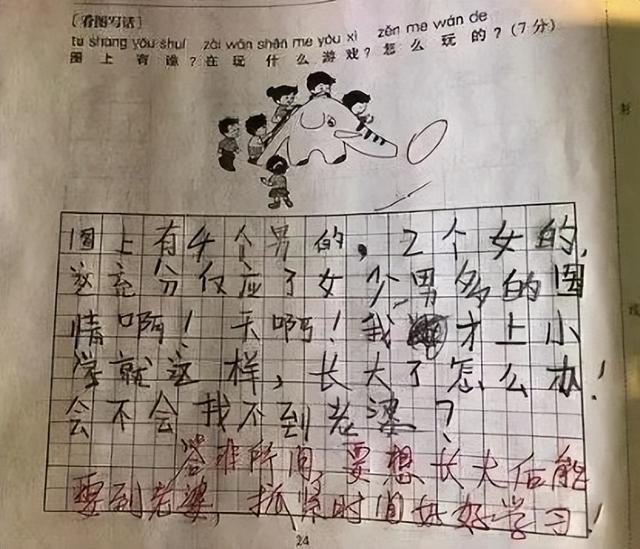 【看图写话】
tu shang you shui zai wan shen me you xi zen me wan de
图上有谁？在玩什么游戏？怎么玩的？(7分)
图上有4个男的，2个女的，
这充分仅应了女少男多的国
情啊！天啊！我才上小
学就这样，长大了怎么办！
会不会找不到老婆？
答非所问，要想长大后能
娶到老婆，抓紧时间好好学习！
24